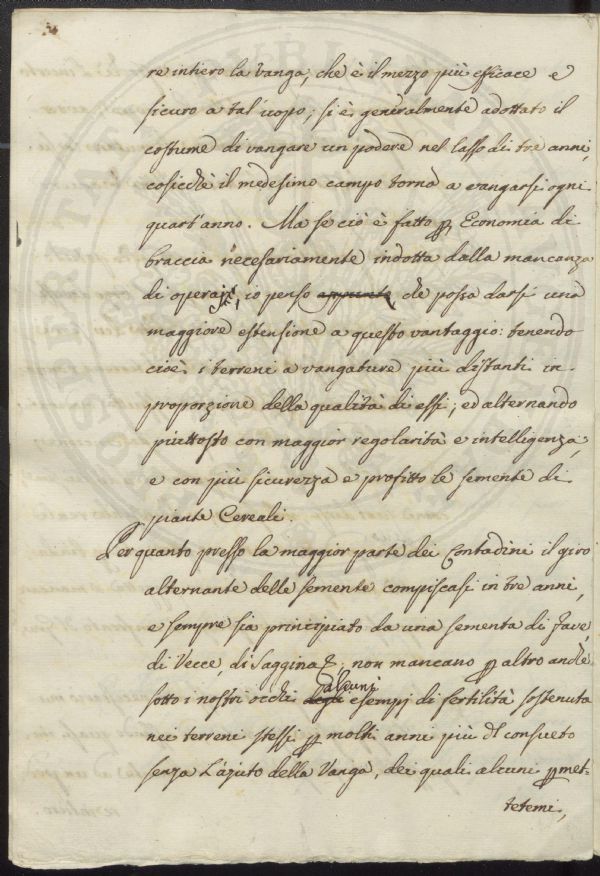 re intiero la vanga, che è il mezzo più efficace e
sicuro a tal'uopo; si è generalmente adottato il
costume di vangare un podere nel lasso di tre anni,
cosicchè il medesimo campo torna a vangarsi ogni
quart'anno. Ma se ciò è fatto p Economia di
braccia necessariamente indotta dalla mancanza
di operaj, io penso appunto che possa darsi una
maggiore estensione a questo vantaggio: tenendo
cioè i terreni a vangature più distanti in
proporzione della qualità di essi; ed alternando
piuttosto con maggior regolarità e intelligenza,
e con più sicurezza e profitto le semente di
piante Cereali.
Per quanto presso la maggior parte dei Contadini il giro
alternante delle semente compiscasi in tre anni,
e sempre sia principiato da una sementa di fave,
di Vecce, di Saggina &, non mancano p altro anche
sotto i nostri occhi degli alcuni esempj di fertilità sostenuta
nei terreni stessi p molti anni più dl consueto
senza l'ajuto della Vanga, dei quali alcuni pmet-
tetemi,